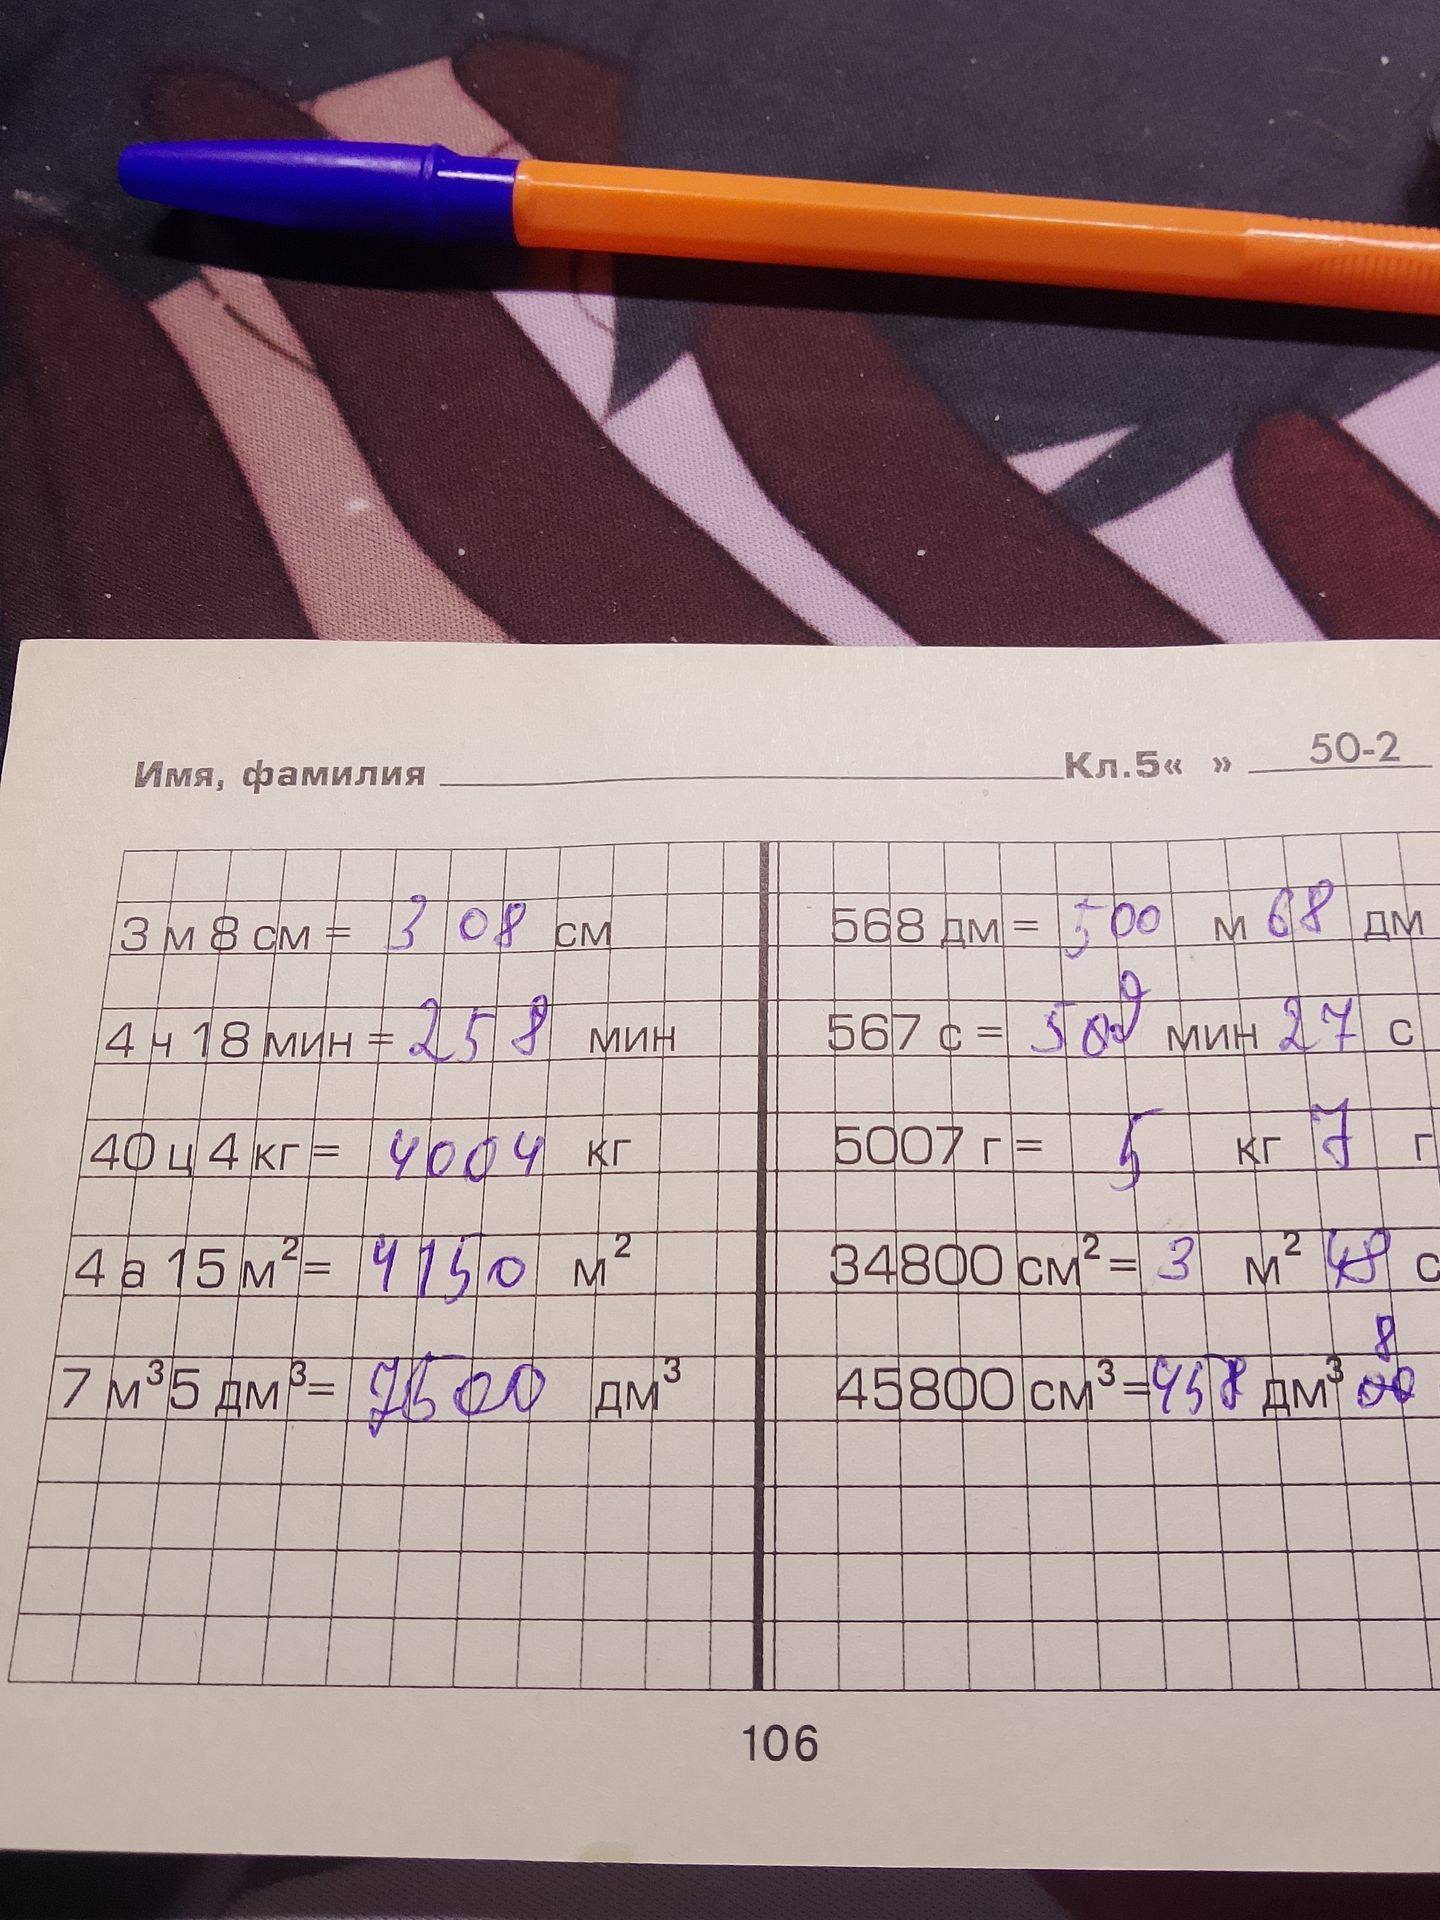 Имя, фамилия Кл.5« » 50-2
3 м 8 см = 308 см
4 ч 18 мин = 258 мин
40 ц 4 кг = 4004 кг
4 а 15 м² = 4150 м²
7 м³ 5 дм³ = 7500 дм³
568 дм = 500 м 68 дм
567 с = мин 27 с
5007 г = 5 кг 7 г
34800 см² = 3 м² 48 с
45800 см³ = 458 дм³
106